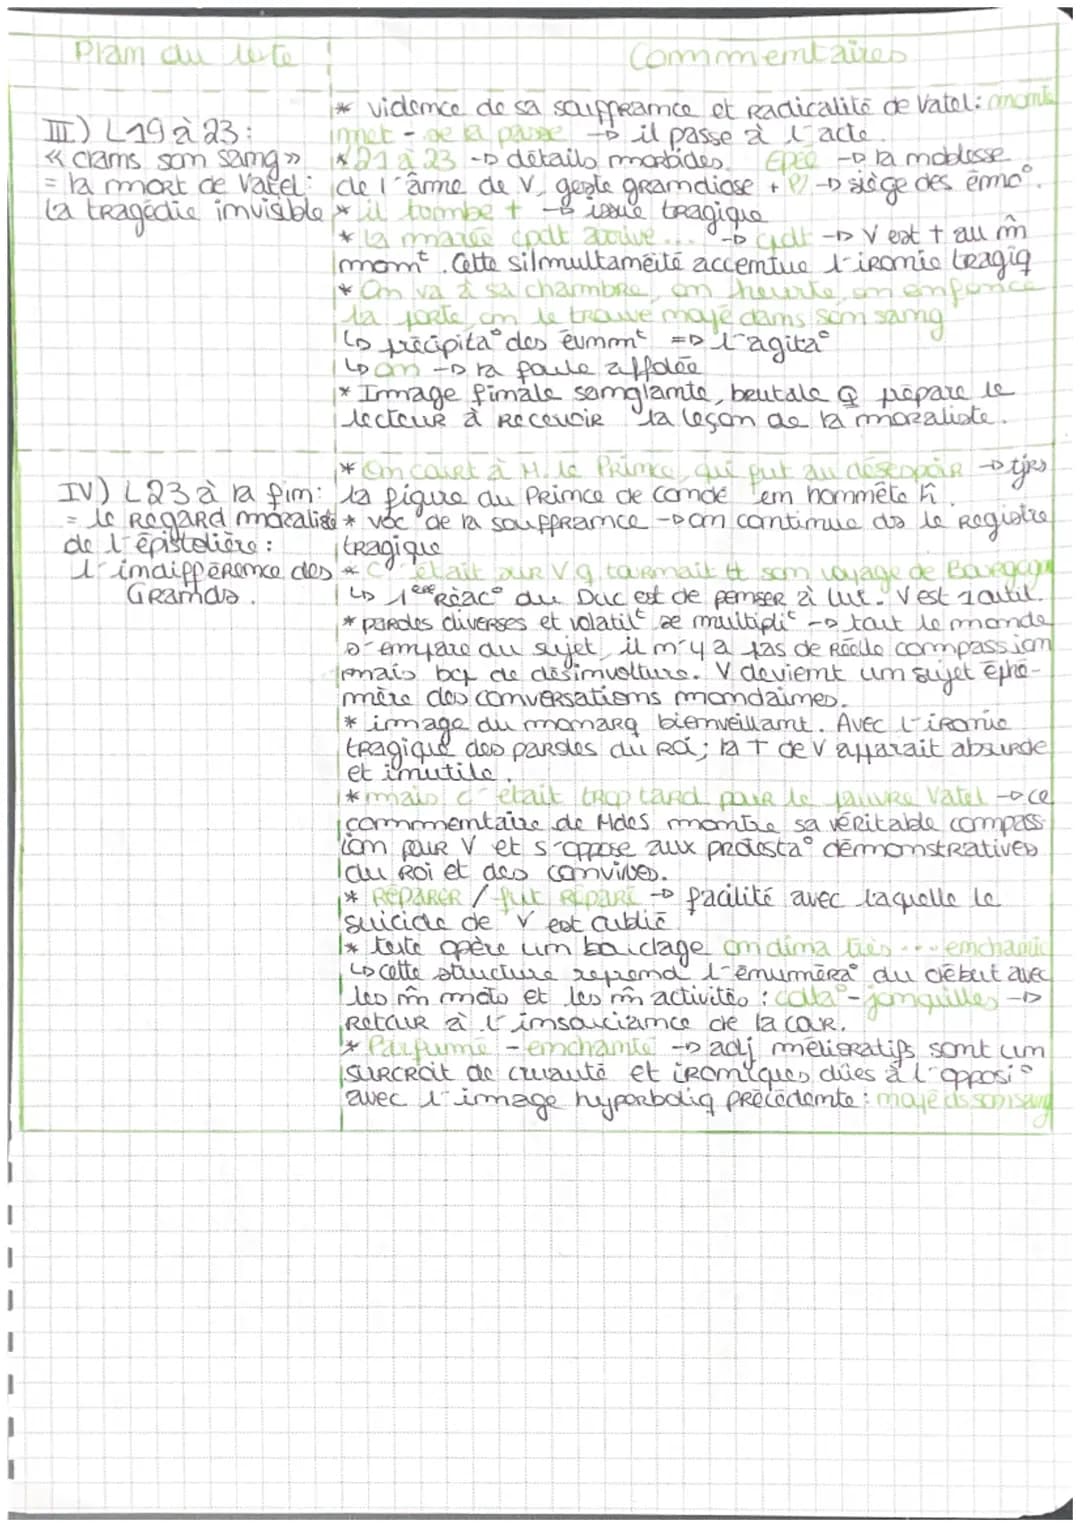 Plan du texte
Commentaires
III) L19 à 23 :
« dans son sang »
= la mort de Vatel :
la tragédie invisible
* vidence de sa souffrance et Radicalité de Vatel : monte
met - se la passe -> il passe à l'acte.
* 21 à 23 -> détails morbides. Epée -> la noblesse
de l'âme de V, geste grandiose + -> siège des émo°.
* il tombe † -> issue tragique
* la marée cpdt arrive... -> cpdt -> V est † au m̂
momt. Cette silmultaméité accentue l'ironie tragiq
* On va à sa chambre, on heurte, on enfonce
la porte, on le trouve noyé dans son sang
↳ précipita° des évmmt => l'agita°
↳ on -> la foule affolée
* Image finale sanglante, brutale Q prépare le
lecteur à recevoir la leçon de la moraliste.
IV) L23 à la fin :
= le Regard moraliste
de l'épistolière :
l'indifférence des
Grands.
* On court à M. le Prince, qui fut au désespoir -> tjrs
la figure du Prince de condé em honnête ĥ.
* voc de la souffrance -> on continue ds le Registre
tragique
* C'était sur V q tournait tt son voyage de Bourgogn
↳ 1ère Réac° du Duc est de penser à lui. V est 1 outil.
* paroles diverses et volatilt se multiplit -> tout le monde
s'empare du sujet, il n'y a pas de Réelle compassion
mais bcp de désinvolture. V devient un sujet éphé-
mère des conversations mondaines.
* image du monarq bienveillant. Avec l'ironie
tragique des paroles du Roi ; la † de V apparait absurde
et inutile.
* mais c'était trop tard pour le pauvre Vatel -> ce
commentaire de Mdes montre sa véritable compass-
ion pour V et s'oppose aux protesta° démonstratives
du Roi et des convives.
* Réparer / fut Réparé -> facilité avec laquelle le
suicide de V est oublié
* texte opère un bouclage on dîna très ... enchanté
↳ cette structure reprend l'énuméra° du début avec
les m̂ mots et les m̂ activités : colla° - jonquilles ->
Retour à l'insouciance de la cour.
* Parfumé - enchanté -> adj mélioratifs sont un
surcroit de cruauté et ironiques dûes à l'opposi°
avec l'image hyperboliq précédente : noyé ds son sang